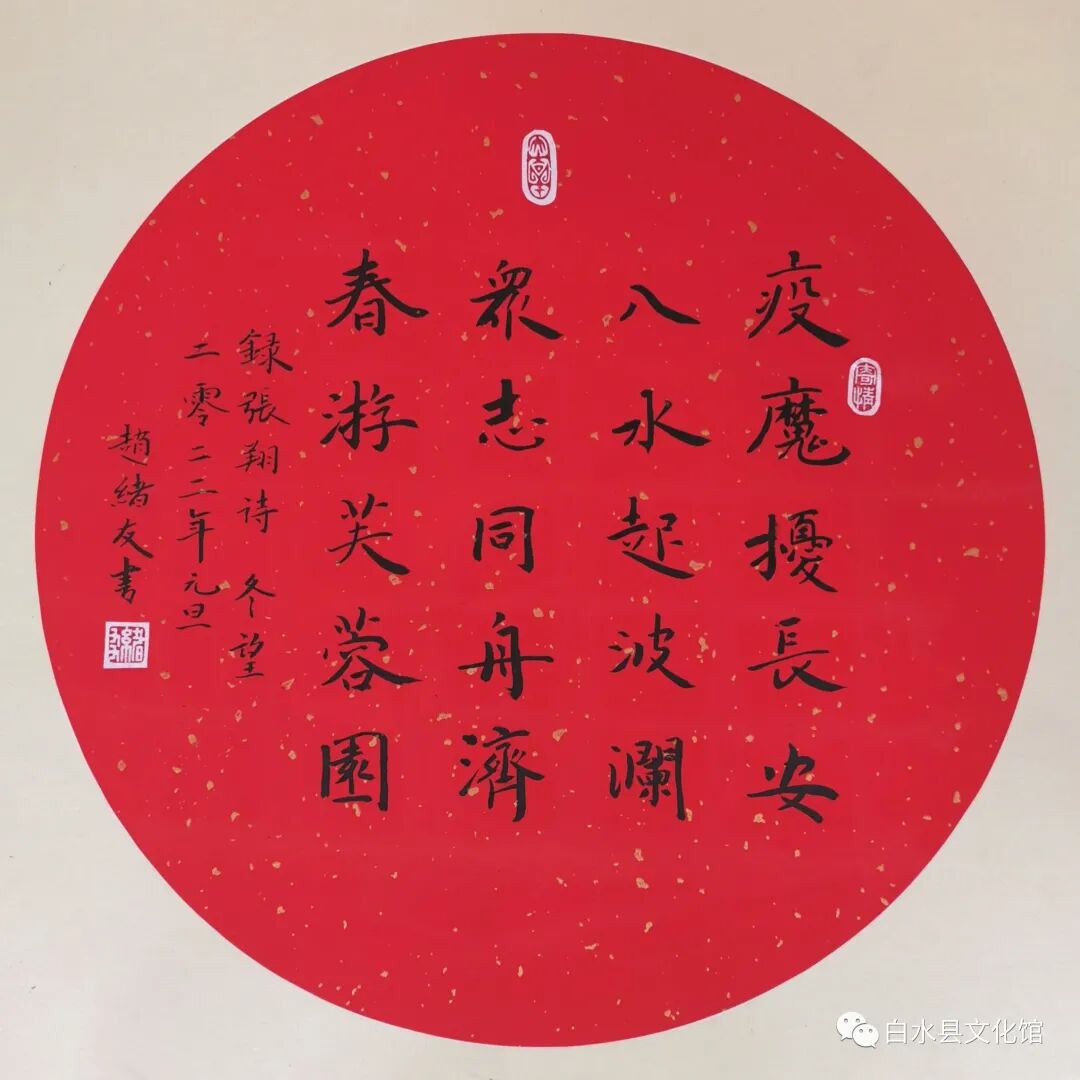 疫魔擾長安
八水起波瀾
衆志同舟濟
春游芙蓉園
録張翔诗 冬望
二零二二年元旦
趙緒友書
白水县文化馆